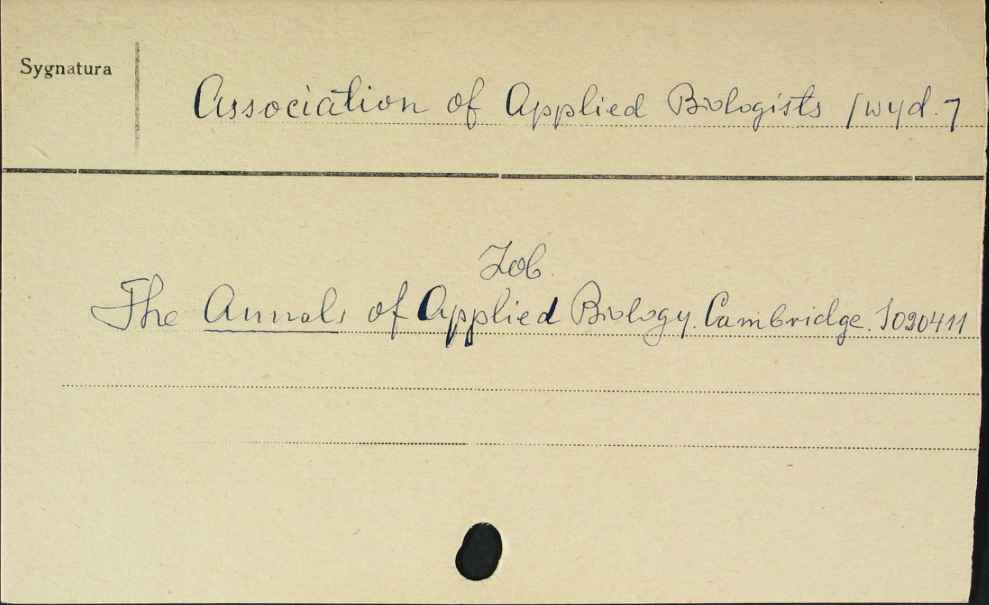 Sygnatura
Association of Applied Biologists /wyd. 7
Zob.
The Annals of Applied Biology. Cambridge. J020411